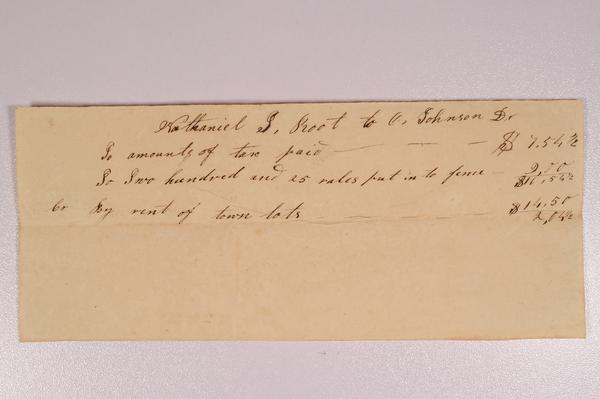 Nathaniel J, Root to O, Johnson Dr
To amounts of tax paid — — — $ 7.54 ½
To Two hundred and 25 rales put in to fence — 9,00
$16,54½
Cr By rent of town lots $14.50
2,04½